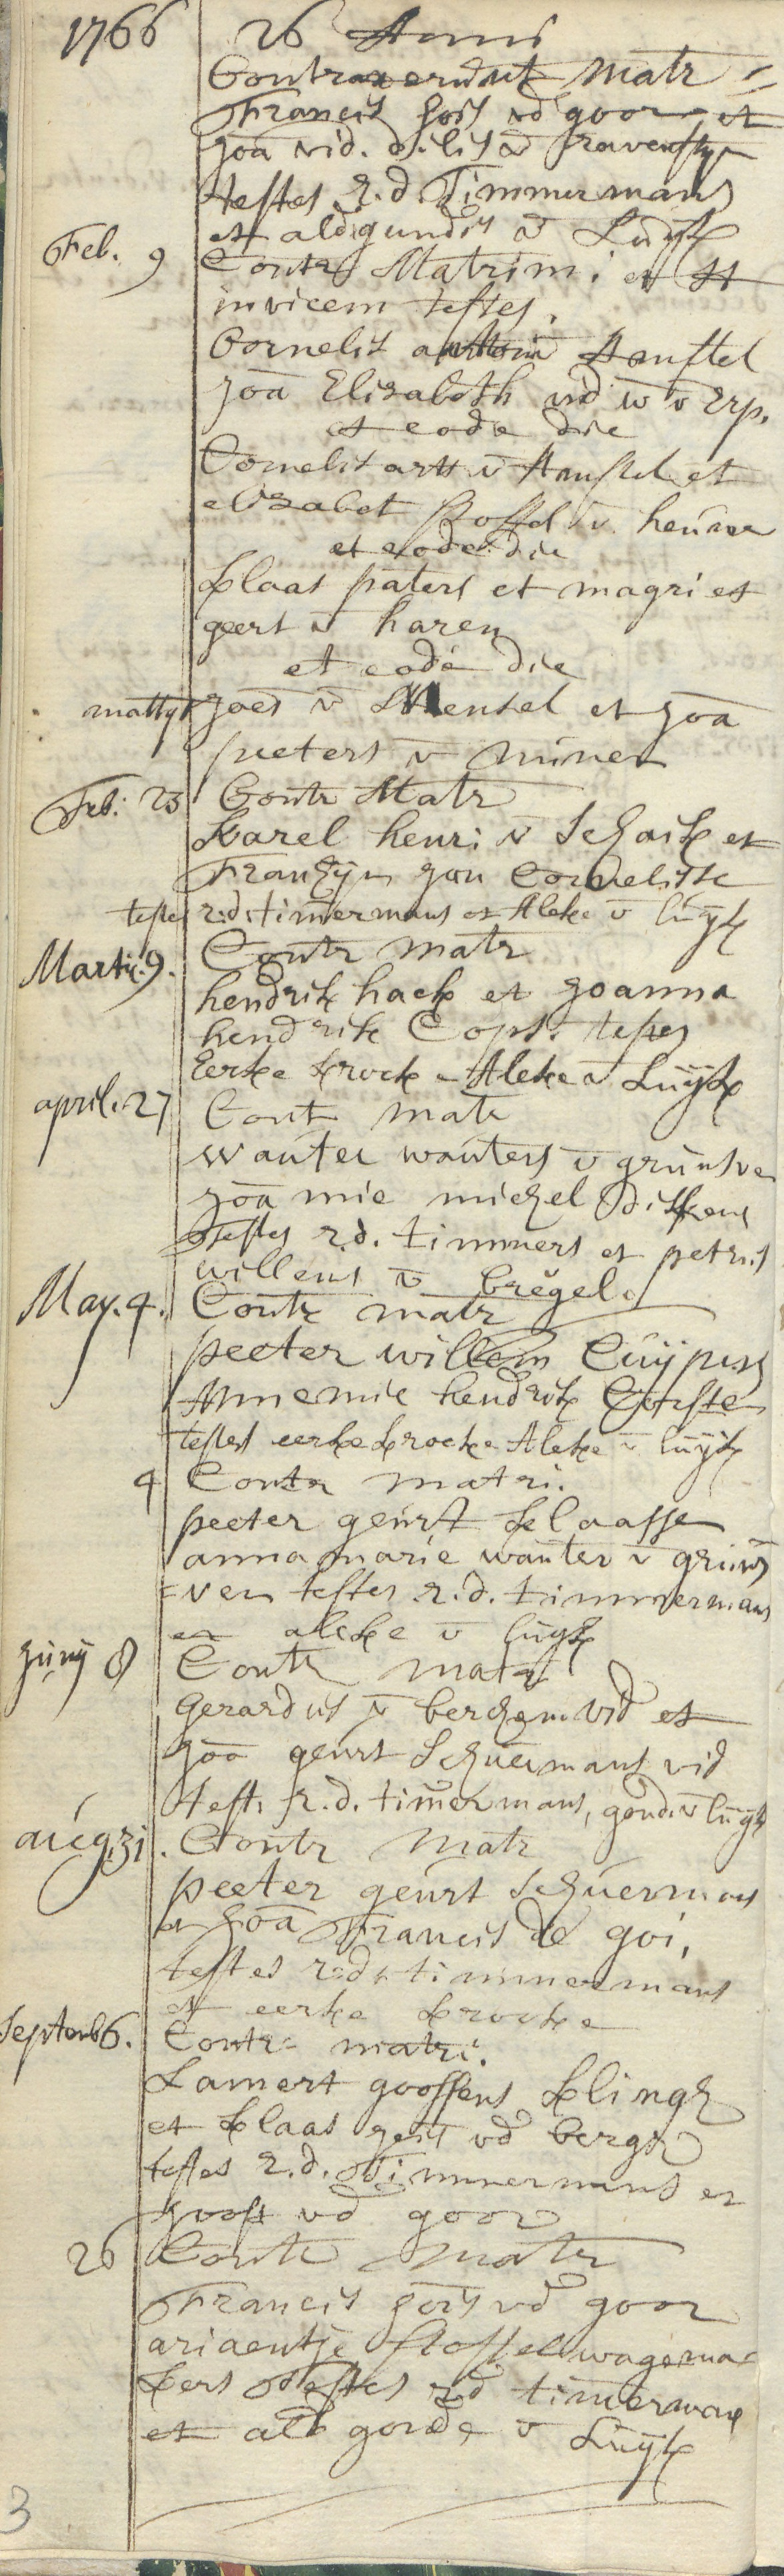 1766 26 Anni
Contraxerunt Matr
Francis Jois vd goor et
Joa vid. dilis v Ravensteyn
testes R.d. Timmermans
et aldegundis v Luijk
Feb. 9 Contr Matrim: et st
invicem testes.
Cornelis antoni Amstel
Joa Elisabeth vid w v Erp.
et eode die
Cornelis art v Amstel et
elisabet Stoffel v. heumen
et eode die
klaas peters et magri et
geert v haren
et eode die
mattys joes v Mensel et Joa
peeters v
Feb: 23 Contr Matr
Karel henri v Schaik et
Franzijn jan Cornelisse
testes r:d: timermans et Aleke v luijk
Martii. 9. Contr matr
hendrik hack et Joanna
hendrik Cops. testes
Eerke krock Aleke v Luijk
april. 27 Cont matr
Wauter wauters v grunsven
Joa mie michel Dirkens
testes r.d. timmers et petrus
willems v bregel
May. 4. Contr matr
peeter willem Cuijpers
Annemie hendrik Corste
testes eerke krocke Aleke v luijk
4 Contr matri.
peeter geurt klaasse
annamarie wauter v gruns
=ven testes r.d. timmermans
en aleke v luijk
Junij 8 Contr matr
Gerardus v berchem vid et
Joa geurt Schuermans vid
test. R.d. timermans, gond. v luijk
aug. 31. Contr Matr
peeter geurt Schuermans
et Joa Francis de goi,
testes r:d: timmermans
et eerke krocke
Septemb 6. Contr: matri.
Lamert goossens klingz
et klaas gert vd bergh
testes R.d. Timmermans et
Joost vd goor
26 Contr matr
Francis Joris vd goor
ariaentje stoffel wagema
kers testes rd timerman
et ald gonde v Luijk
3